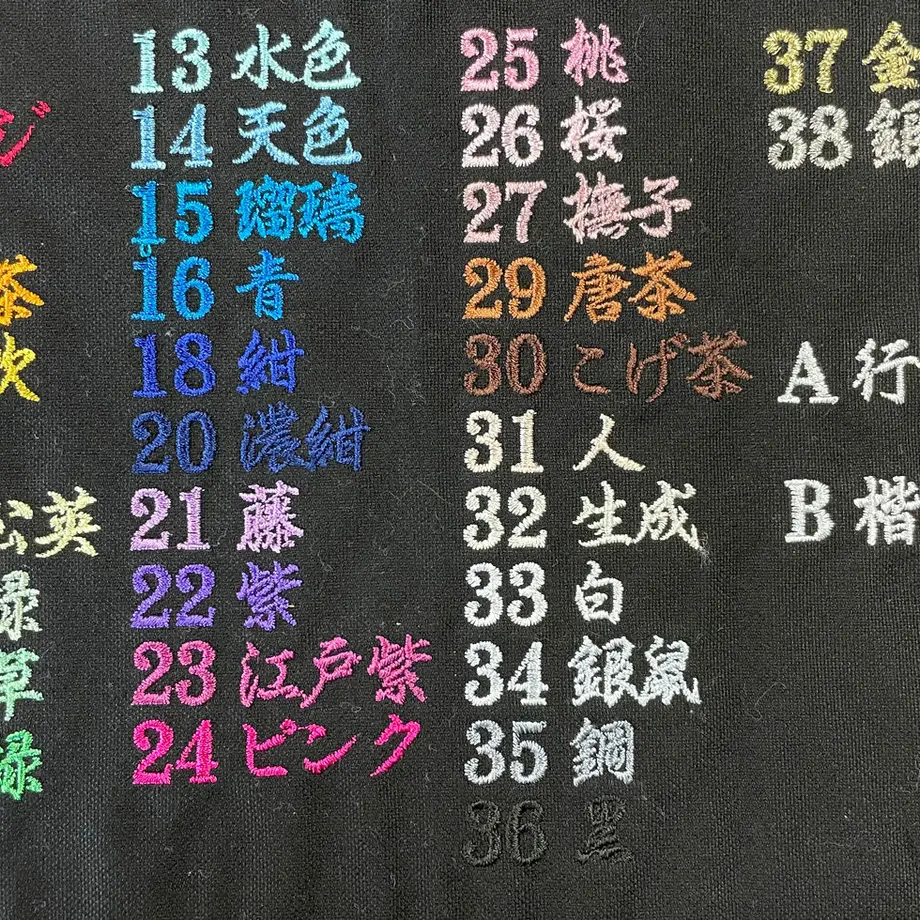 ジ
茶
吹
公英
緑
草
緑
13 水色
14 天色
15 瑠璃
16 青
18 紺
20 濃紺
21 藤
22 紫
23 江戸紫
24 ピンク
25 桃
26 桜
27 撫子
29 唐茶
30 こげ茶
31 人
32 生成
33 白
34 銀鼠
35 鋼
36 黒
37 金
38 銀
A 行
B 楷